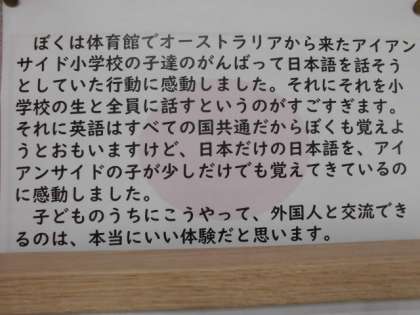 ぼくは体育館でオーストラリアから来たアイアン
サイド小学校の子達のがんばって日本語を話そう
としていた行動に感動しました。それにそれを小
学校の生と全員に話すというのがすごすぎます。
それに英語はすべての国共通だからぼくも覚えよ
うとおもいますけど、日本だけの日本語を、アイ
アンサイドの子が少しだけでも覚えてきているの
に感動しました。
子どものうちにこうやって、外国人と交流でき
るのは、本当にいい体験だと思います。